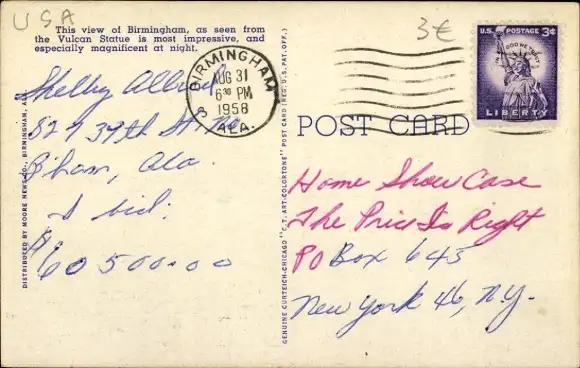 USA
3€
This view of Birmingham, as seen from
the Vulcan Statue is most impressive, and
especially magnificent at night.
BIRMINGHAM
AUG 31
6 30 PM
1958
ALA.
U.S. POSTAGE 3¢
IN GOD WE TRUST
LIBERTY
POST CARD
Shelby
827 39th St. No.
B'ham, Ala.
I bid:
$60500.00
Home Show Case
The Price Is Right
PO Box 645
New York 46, N.Y.
DISTRIBUTED BY MOORE NEWS CO., BIRMINGHAM, ALA.
GENUINE CURTEICH-CHICAGO "C.T. ART-COLORTONE" POST CARD (REG. U.S. PAT. OFF.)